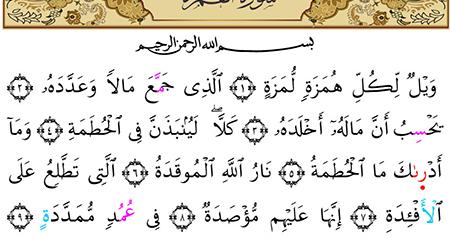 بسم الله الرحمن الرحيم
وَيْلٌ لِّكُلِّ هُمَزَةٍ لُّمَزَةٍ ﴿١﴾ الَّذِى جَمَّعَ مَالاً وَعَدَّدَهُۥ ﴿٢﴾
يَحْسِبُ أَنَّ مَالَهُۥٓ أَخْلَدَهُۥ ﴿٣﴾ كَلَّاۖ لَيُنۢبَذَنَّ فِى الْحُطَمَةِ ﴿٤﴾ وَمَآ
أَدْرِىٰكَ مَا الْحُطَمَةُ ﴿٥﴾ نَارُ اللَّهِ الْمُوقَدَةُ ﴿٦﴾ الَّتِى تَطَّلِعُ عَلَى
الْأَفْـِٔدَةِ ﴿٧﴾ إِنَّهَا عَلَيْهِم مُّؤْصَدَةٌ ﴿٨﴾ فِى عُمُدٍ مُّمَدَّدَةٍ ﴿٩﴾